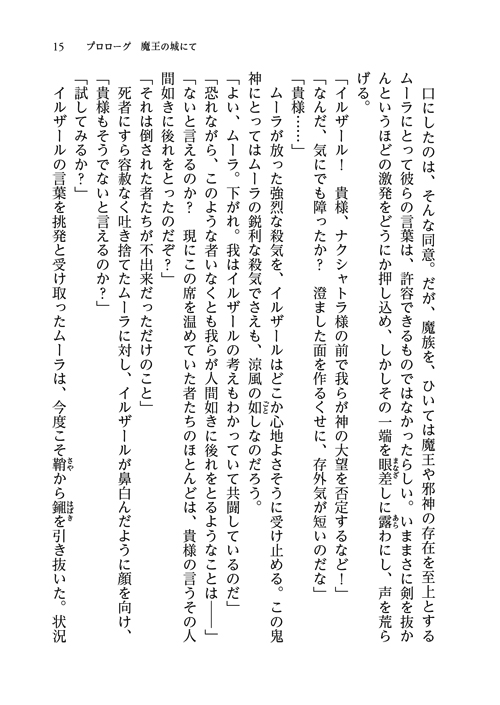 15　プロローグ　魔王の城にて
　口にしたのは、そんな同意。だが、魔族を、ひいては魔王や邪神の存在を至上とする
ムーラにとって彼らの言葉は、許容できるものではなかったらしい。いままさに剣を抜か
んというほどの激発をどうにか押し込め、しかしその一端を眼差しに露わにし、声を荒ら
げる。
「イルザール！　貴様、ナクシャトラ様の前で我らが神の大望を否定するなど！」
「なんだ、気にでも障ったか？　澄ました面を作るくせに、存外気が短いのだな」
「貴様……」
　ムーラが放った強烈な殺気を、イルザールはどこか心地よさそうに受け止める。この鬼
神にとってはムーラの鋭利な殺気でさえも、涼風の如しなのだろう。
「よい、ムーラ。下がれ。我はイルザールの考えもわかっていて共闘しているのだ」
「恐れながら、このような者いなくとも我らが人間如きに後れをとるようなことは――」
「ないと言えるのか？　現にこの席を温めていた者たちのほとんどは、貴様の言うその人
間如きに後れをとったのだぞ？」
「それは倒された者たちが不出来だっただけのこと」
　死者にすら容赦なく吐き捨てたムーラに対し、イルザールが鼻白んだように顔を向け、
「貴様もそうでないと言えるのか？」
「試してみるか？」
　イルザールの言葉を挑発と受け取ったムーラは、今度こそ鞘から鎺を引き抜いた。状況